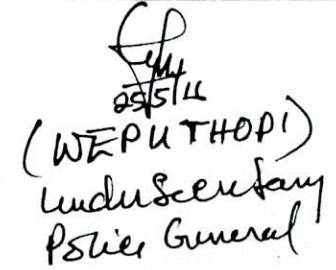 25/5/11
(WEPU THOPI)
Under Secretary
Police General